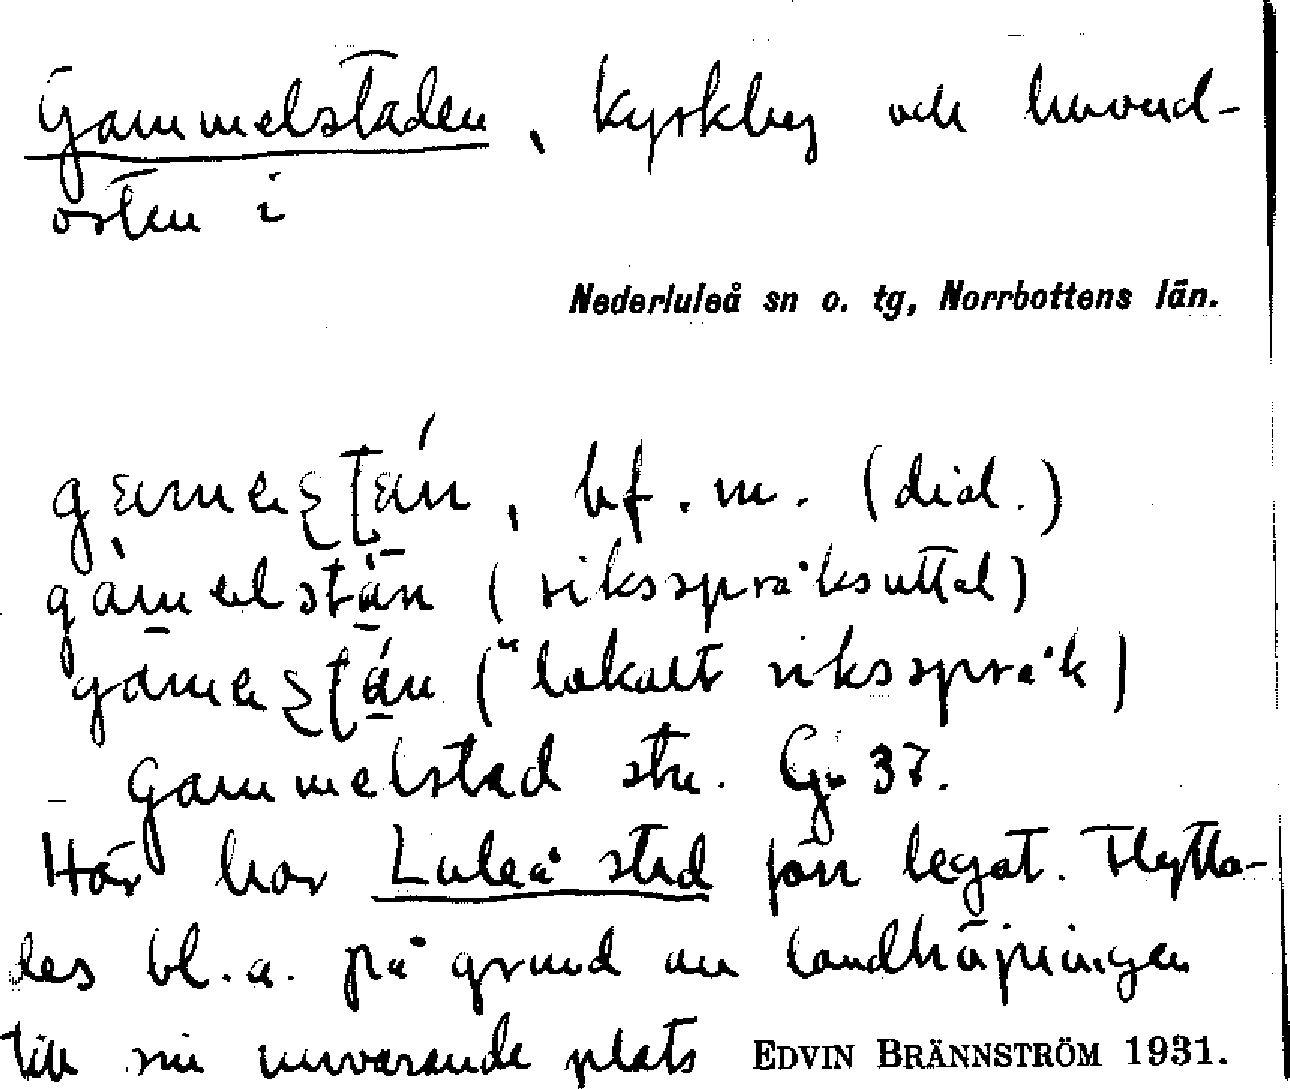 Gammelstaden, kyrkby och huvud-
orten i
Nederluleå sn o. tg, Norrbottens län.
bf. m. (dial.)
(riksspråksuttal)
("lokalt riksspråk)
Gammelstad stn. G. 37.
Här har Luleå stad förr legat. Flytta-
des bl. a. på grund av landhöjningen
till sin nuvarande plats EDVIN BRÄNNSTRÖM 1931.